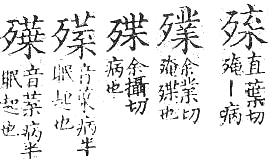 直葉切
殗丨病
余業切
殗殜也
殜
余攝切
病也
音葉病半
眠起也
音葉病半
眠起也